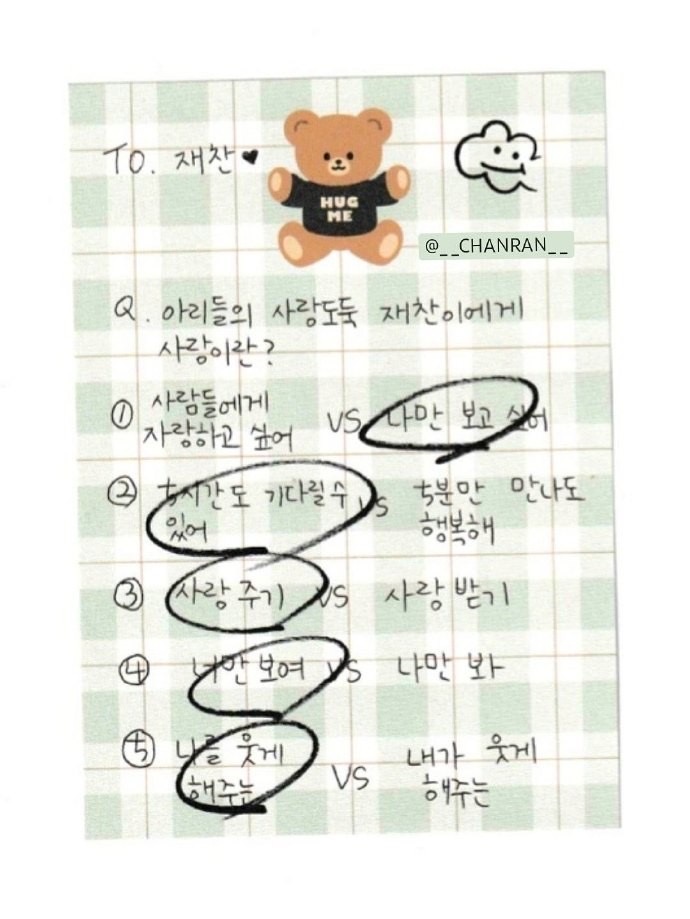 TO. 재찬♥
HUG
ME
@__CHANRAN__
Q. 아리들의 사랑도둑 재찬이에게
사랑이란?
① 사람들에게
자랑하고 싶어 VS 나만 보고 싶어
② 5시간도 기다릴 수
있어 VS 5분만 만나도
행복해
③ 사랑 주기 VS 사랑 받기
④ 너만 보여 VS 나만 봐
⑤ 나를 웃게
해주는 VS 내가 웃게
해주는